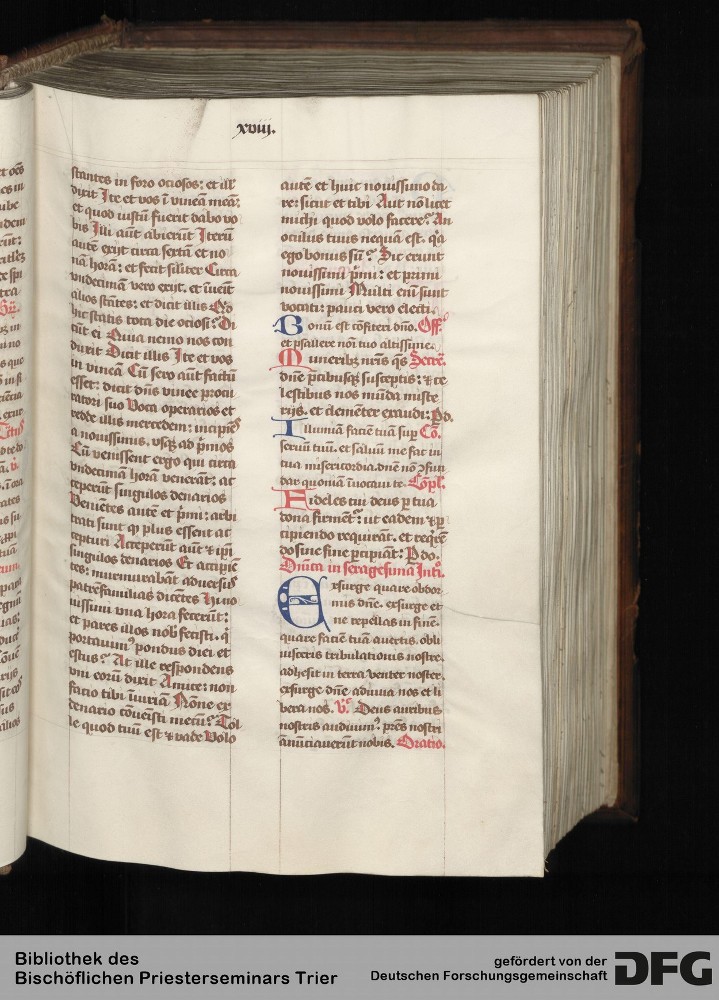 xviij.
stantes in foro ociosos: et ill'
dixit Ite et vos ī vineā meā:
et quod iustū fuerit dabo vo
bis Illi aūt abierūt Iterū
autē exijt circa sextā et no
nā horā: et fecit sīliter Circa
vndecimam vero exijt. et īueīt
alios stātes: et dicit illis Q'd
hic statis tota die ociosi? Di
cūt ei Quia nemo nos con
duxit Dicit illis Ite et vos
in vineā Cū sero aūt factū
esset: dicit dn̄s vinee procu
ratori suo Voca operarios et
redde illis mercedem: incipiēs
a nouissimis. vsq; ad p̄mos
Cū venissent ergo qui circa
vndecimā horā venerāt: ac
ceperūt singulos denarios
Venietes autē et p̄mi: arbi
trati sunt q̄ plus essent ac
cepturi Acceperūt aūt & ip̄i
singulos denarios Et accipiē
tes: murmurabāt aduersus
patrēfamilias dicētes Hij no
uissimi vna hora fecerūt:
et pares illos nob̄ fecisti. q̄
portauim9 pondus diei et
estus? At ille respondens
vni eorū dixit Amice: non
facio tibi iniuriā Nōne ex
denario cōuēisti mecū? Tol
le quod tuū est & vade Volo
autē et huic nouissimo da
re: sicut et tibi Aut nō licet
michi quod volo facere? An
oculus tuus nequā est. q̄a
ego bonus sū? Sic erunt
nouissimi p̄mi: et primi
nouissimi Multi em̄ sunt
vocati: pauci vero electi.
Bonū est cōfiteri dn̄o. Off'
et psallere nōi tuo altissime.
Muneribz nr̄is q̄s Secret'.
dn̄e p̄cibusq; susceptis: & ce
lestibus nos mūda miste
rijs. et clemēter exaudi: P do.
Illumīa faciē tuā sup Co.
seruū tuū. et saluū me fac in
tua misericordia. dn̄e nō ɔfun
dar quoniā īuocaui te. Cōpl'.
Fideles tui deus p tua
dona firment': ut eadem & p
cipiendo requirāt. et req̄rē
do sine fine p̄cipiāt: P do.
Dn̄ica in sexagesima Int'.
Exsurge quare obdor
mis dn̄e. exsurge et
ne repellas in finē.
quare faciē tuā auertis. obli
uisceris tribulationis nostre.
adhesit in terra venter noster.
exsurge dn̄e adiuua nos et li
bera nos. V' Deus auribus
nostris audiuim9. pr̄es nostri
annūciauerūt nobis. Oratio.
Bibliothek des
Bischöflichen Priesterseminars Trier
gefördert von der
Deutschen Forschungsgemeinschaft
DFG